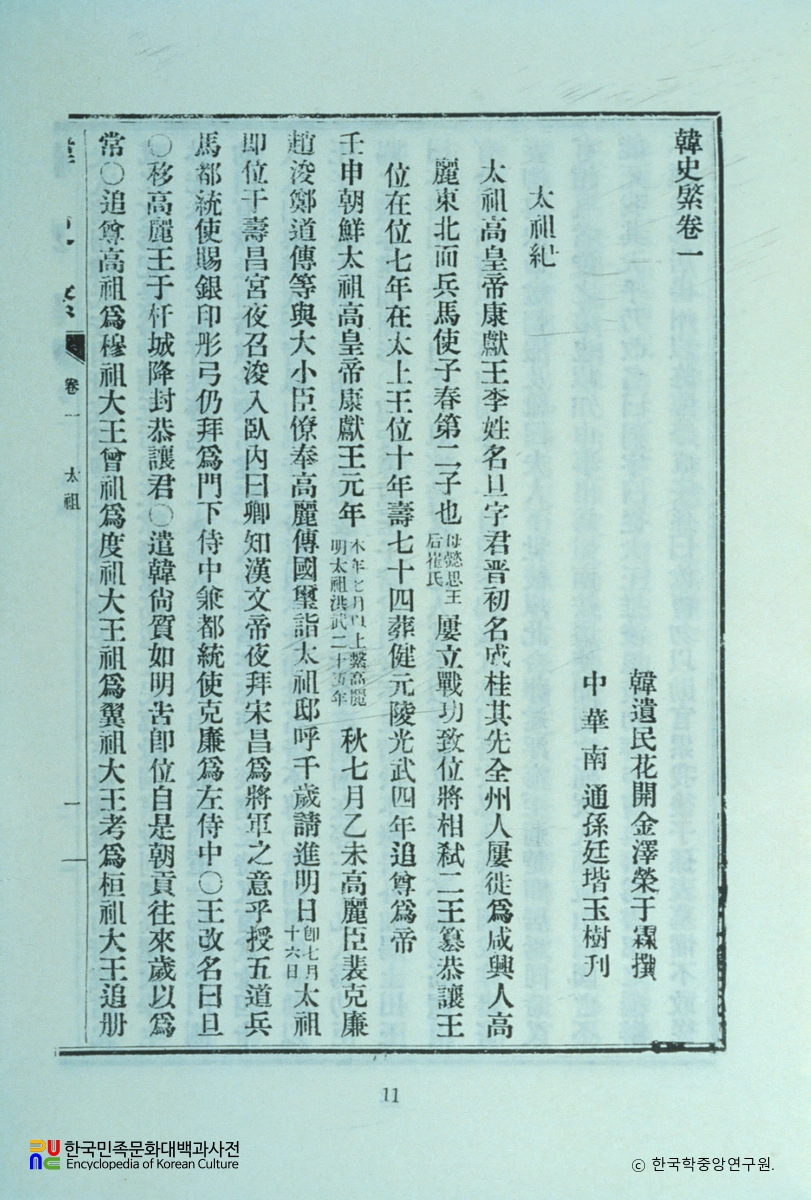 韓史綮卷一
韓遺民花開金澤榮于霖撰
中華南通孫廷堦玉樹刋
太祖紀
太祖高皇帝康獻王李姓名旦字君晋初名成桂其先全州人屢徙爲咸興人高
麗東北面兵馬使子春第二子也母懿思王后崔氏屢立戰功致位將相弑二王簒恭讓王
位在位七年在太上王位十年壽七十四葬健元陵光武四年追尊爲帝
壬申朝鮮太祖高皇帝康獻王元年本年七月以上繫高麗明太祖洪武二十五年秋七月乙未高麗臣裴克廉
趙浚鄭道傳等與大小臣僚奉高麗傳國璽詣太祖邸呼千歲請進明日卽七月十六日太祖
即位于壽昌宮夜召浚入臥内曰卿知漢文帝夜拜宋昌爲將軍之意乎授五道兵
馬都統使賜銀印彤弓仍拜爲門下侍中兼都統使克廉爲左侍中〇王改名曰旦
〇移高麗王于杆城降封恭讓君〇遣韓尙質如明告卽位自是朝貢往來歲以爲
常〇追尊高祖爲穆祖大王曾祖爲度祖大王祖爲翼祖大王考爲桓祖大王追册
卷一 太祖 一
11
한국민족문화대백과사전
Encyclopedia of Korean Culture
ⓒ 한국학중앙연구원.